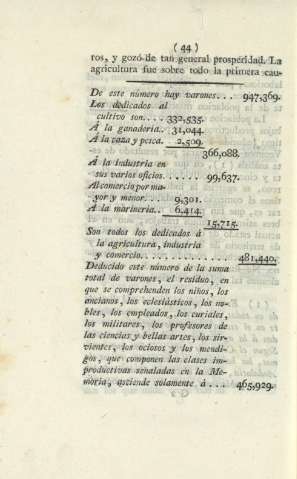 ( 44 )
ros, y gozó de tan general prosperidad. La
agricultura fue sobre todo la primera cau-
De este número hay varones... 947,369.
Los dedicados al
cultivo son.... 332,535.
Á la ganadería.. 31,044.
Á la caza y pesca. 2,509.
366,088.
Á la industria en
sus varios oficios....... 99,637.
Al comercio por ma-
yor y menor..... 9,301.
Á la marinería.. 6,414.
15,715.
Son todos los dedicados á
la agricultura, industria
y comercio............... 481,440.
Deducido este número de la suma
total de varones, el residuo, en
que se comprehenden los niños, los
ancianos, los eclesiásticos, los no-
bles, los empleados, los curiales,
los militares, los profesores de
las ciencias y bellas artes, los sir-
vientes, los ociosos y los mendi-
gos, que componen las clases im-
productivas señaladas en la Me-
moria, asciende solamente á ... 465,929.